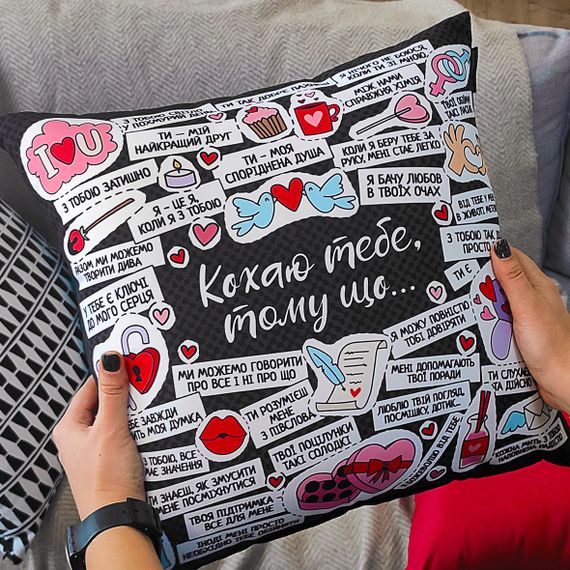 Я НІЧОГО НЕ БОЮСЯ,
КОЛИ ТИ ЗІ МНОЮ
ТИ ТАК ДОБРЕ
З ТОБОЮ СВІТЛО
У ПОХМУРИЙ ДЕНЬ
МІЖ НАМИ
СПРАВЖНЯ ХІМІЯ
ТВОЇ
ТАКІ
I U
ТИ – МІЙ
НАЙКРАЩИЙ ДРУГ
КОЛИ Я БЕРУ ТЕБЕ ЗА
РУКУ, МЕНІ СТАЄ ЛЕГКО
ТИ – МОЯ
СПОРІДНЕНА ДУША
З ТОБОЮ ЗАТИШНО
Я БАЧУ ЛЮБОВ
В ТВОЇХ ОЧАХ
Я – ЦЕ Я,
КОЛИ Я З ТОБОЮ
ВІД ТЕБЕ У МЕНЕ
В ЖИВОТІ
РАЗОМ МИ МОЖЕМО
ТВОРИТИ ДИВА
З ТОБОЮ ТАК
ПРОСТО
Кохаю тебе,
тому що...
ТИ Є
У ТЕБЕ Є КЛЮЧІ
ДО МОГО СЕРЦЯ
Я МОЖУ ПОВНІСТЮ
ТОБІ ДОВІРЯТИ
МИ МОЖЕМО ГОВОРИТИ
ПРО ВСЕ І НІ ПРО ЩО
МЕНІ ДОПОМАГАЮТЬ
ТВОЇ ПОРАДИ
ТИ СЛУХАЄШ
ТА ДІЙСНО
ТИ РОЗУМІЄШ
МЕНЕ
З ПІВСЛОВА
ЛЮБЛЮ ТВІЙ ПОГЛЯД,
ПОСМІШКУ, ДОТИК...
ТЕБЕ ЗАВЖДИ
МОЯ ДУМКА
З ТОБОЮ, ВСЕ
МАЄ ЗНАЧЕННЯ
ТВОЇ ПОЦІЛУНКИ
ТАКІ СОЛОДКІ
ВІД ТЕБЕ
КОЖНА МИТЬ З
ТИ ЗНАЄШ, ЯК ЗМУСИТИ
МЕНЕ ПОСМІХНУТИСЯ
ТВОЯ ПІДТРИМКА
ВСЕ ДЛЯ МЕНЕ
ІНОДІ МЕНІ ПРОСТО
НЕОБХІДНО ТЕБЕ ОБІЙНЯТИ